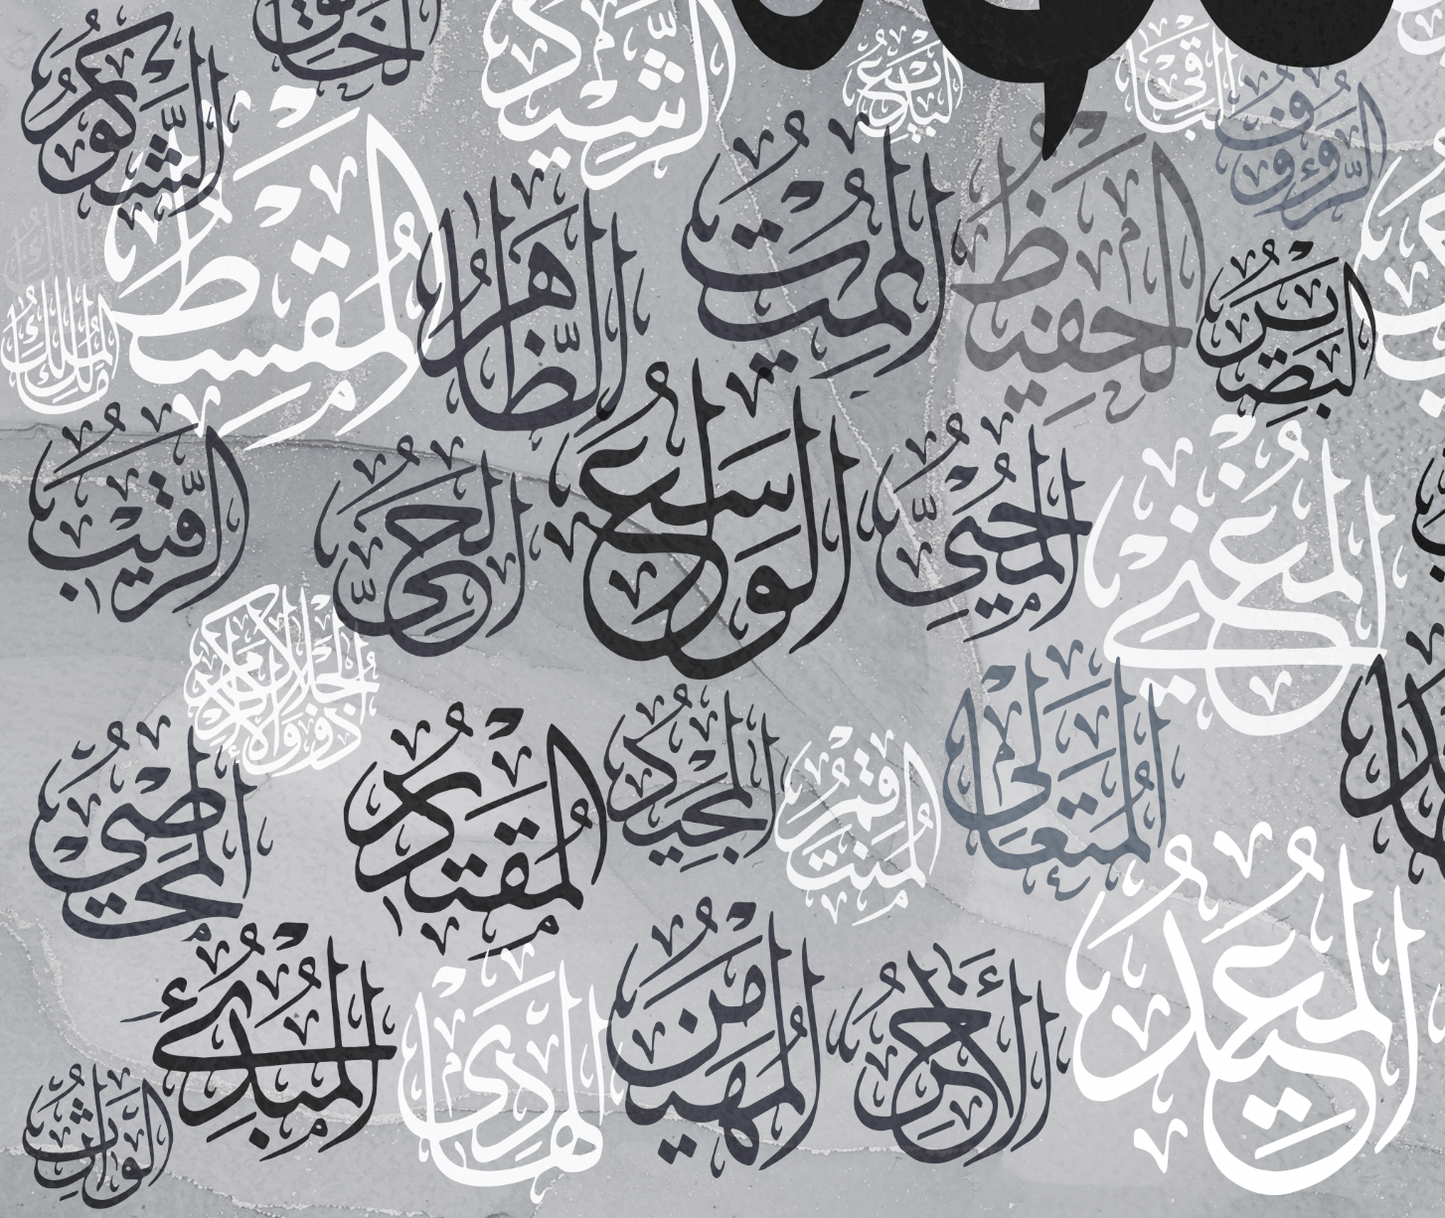 الشكور
الخالق
الرشيد
البديع
الباقي
الرؤوف
المقسط
الظاهر
المميت
الحفيظ
البصير
مالك الملك
الرقيب
الحي
الواسع
المحيي
المغني
ذو الجلال والإكرام
المحصي
المقتدر
المجيد
المنتقم
المتعالي
المبدئ
الهادي
المهيمن
الآخر
المعيد
الوارث